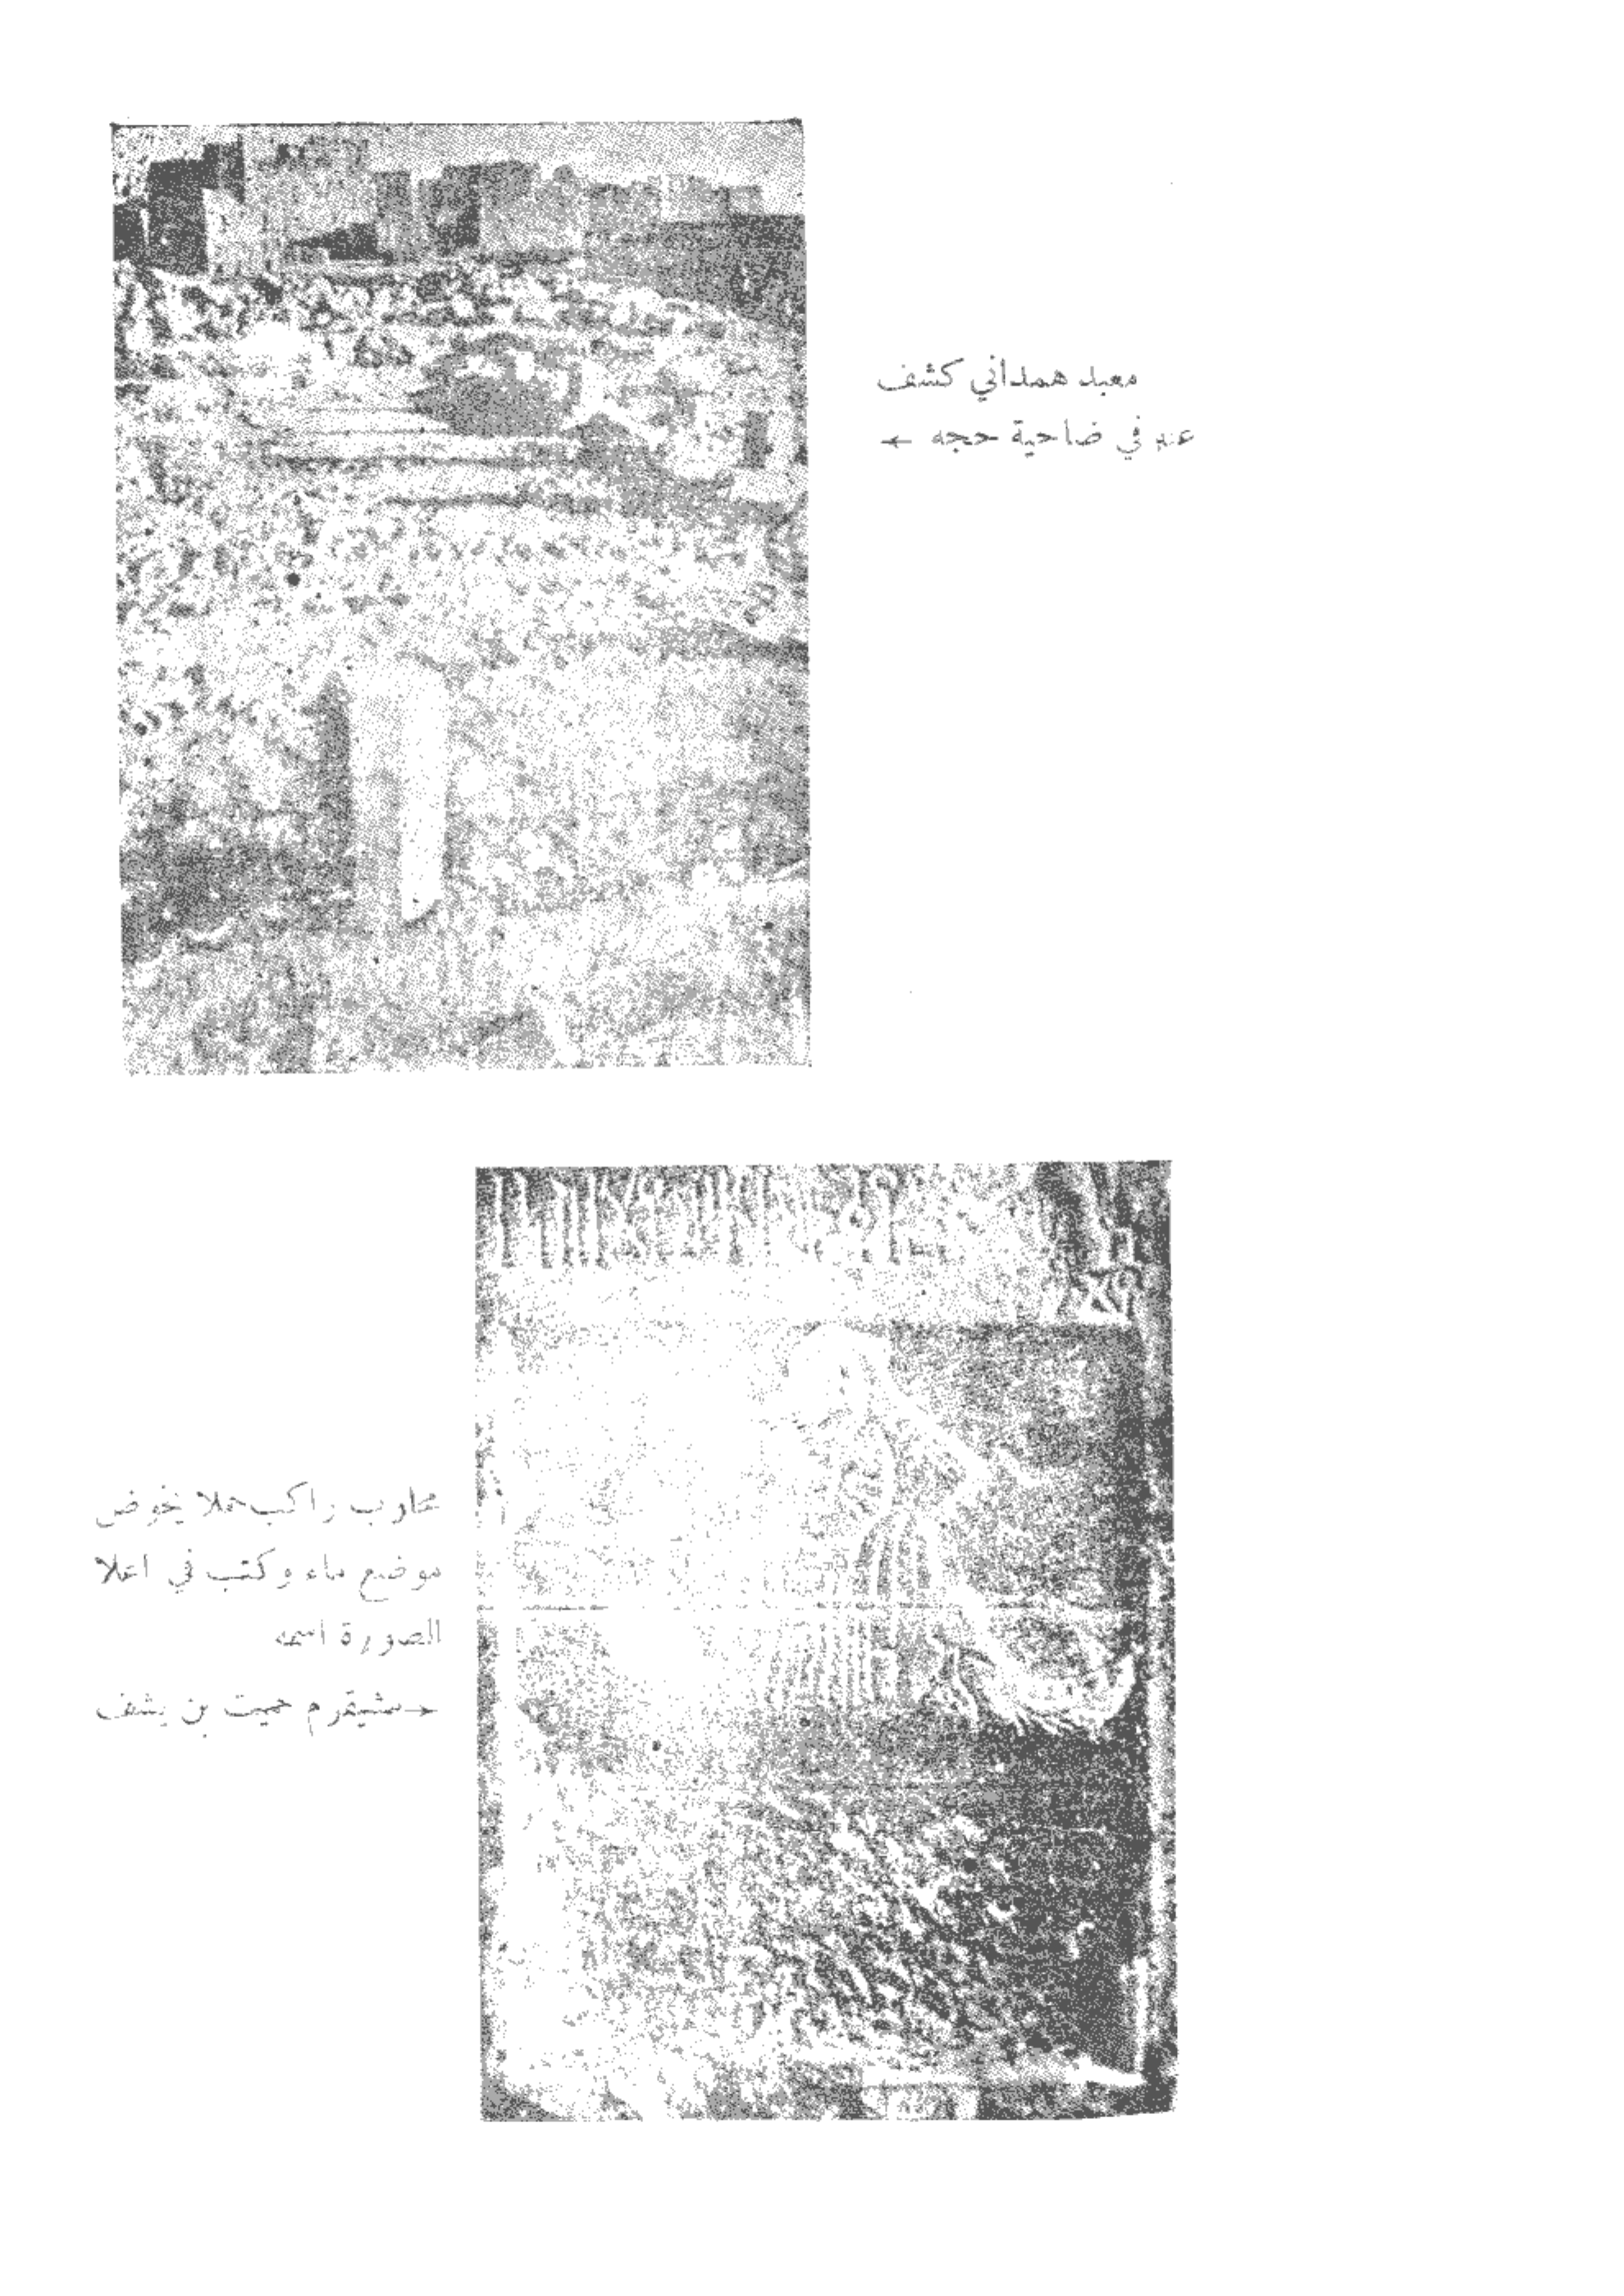 معبد همداني كشف
عنه في ضاحية حجه ←
محارب راكب جملا يخوض
موضع ماء وكتب في اعلا
الصورة اسمه
→ مشيقرم حميت بن يشف